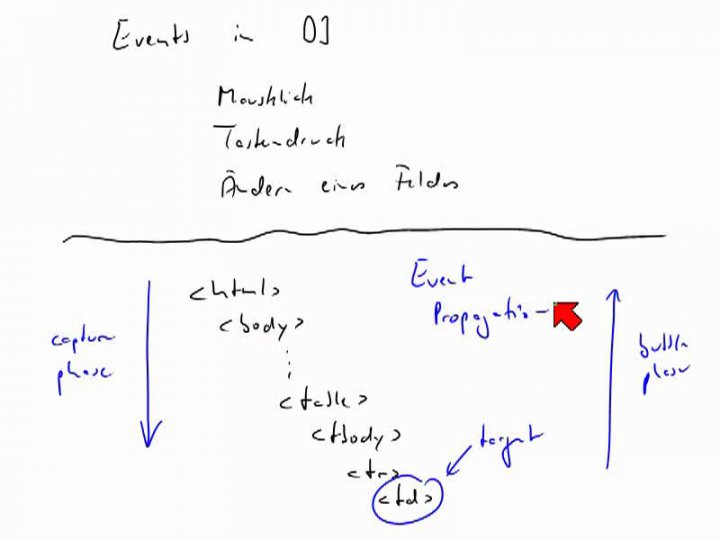 Events in DJ
Mausklick
Tastendruck
Ändern eines Feldes
Event
Propagation
<html>
<body>
capture
phase
bubble
phase
<table>
<tbody>
target
<tr>
<td>